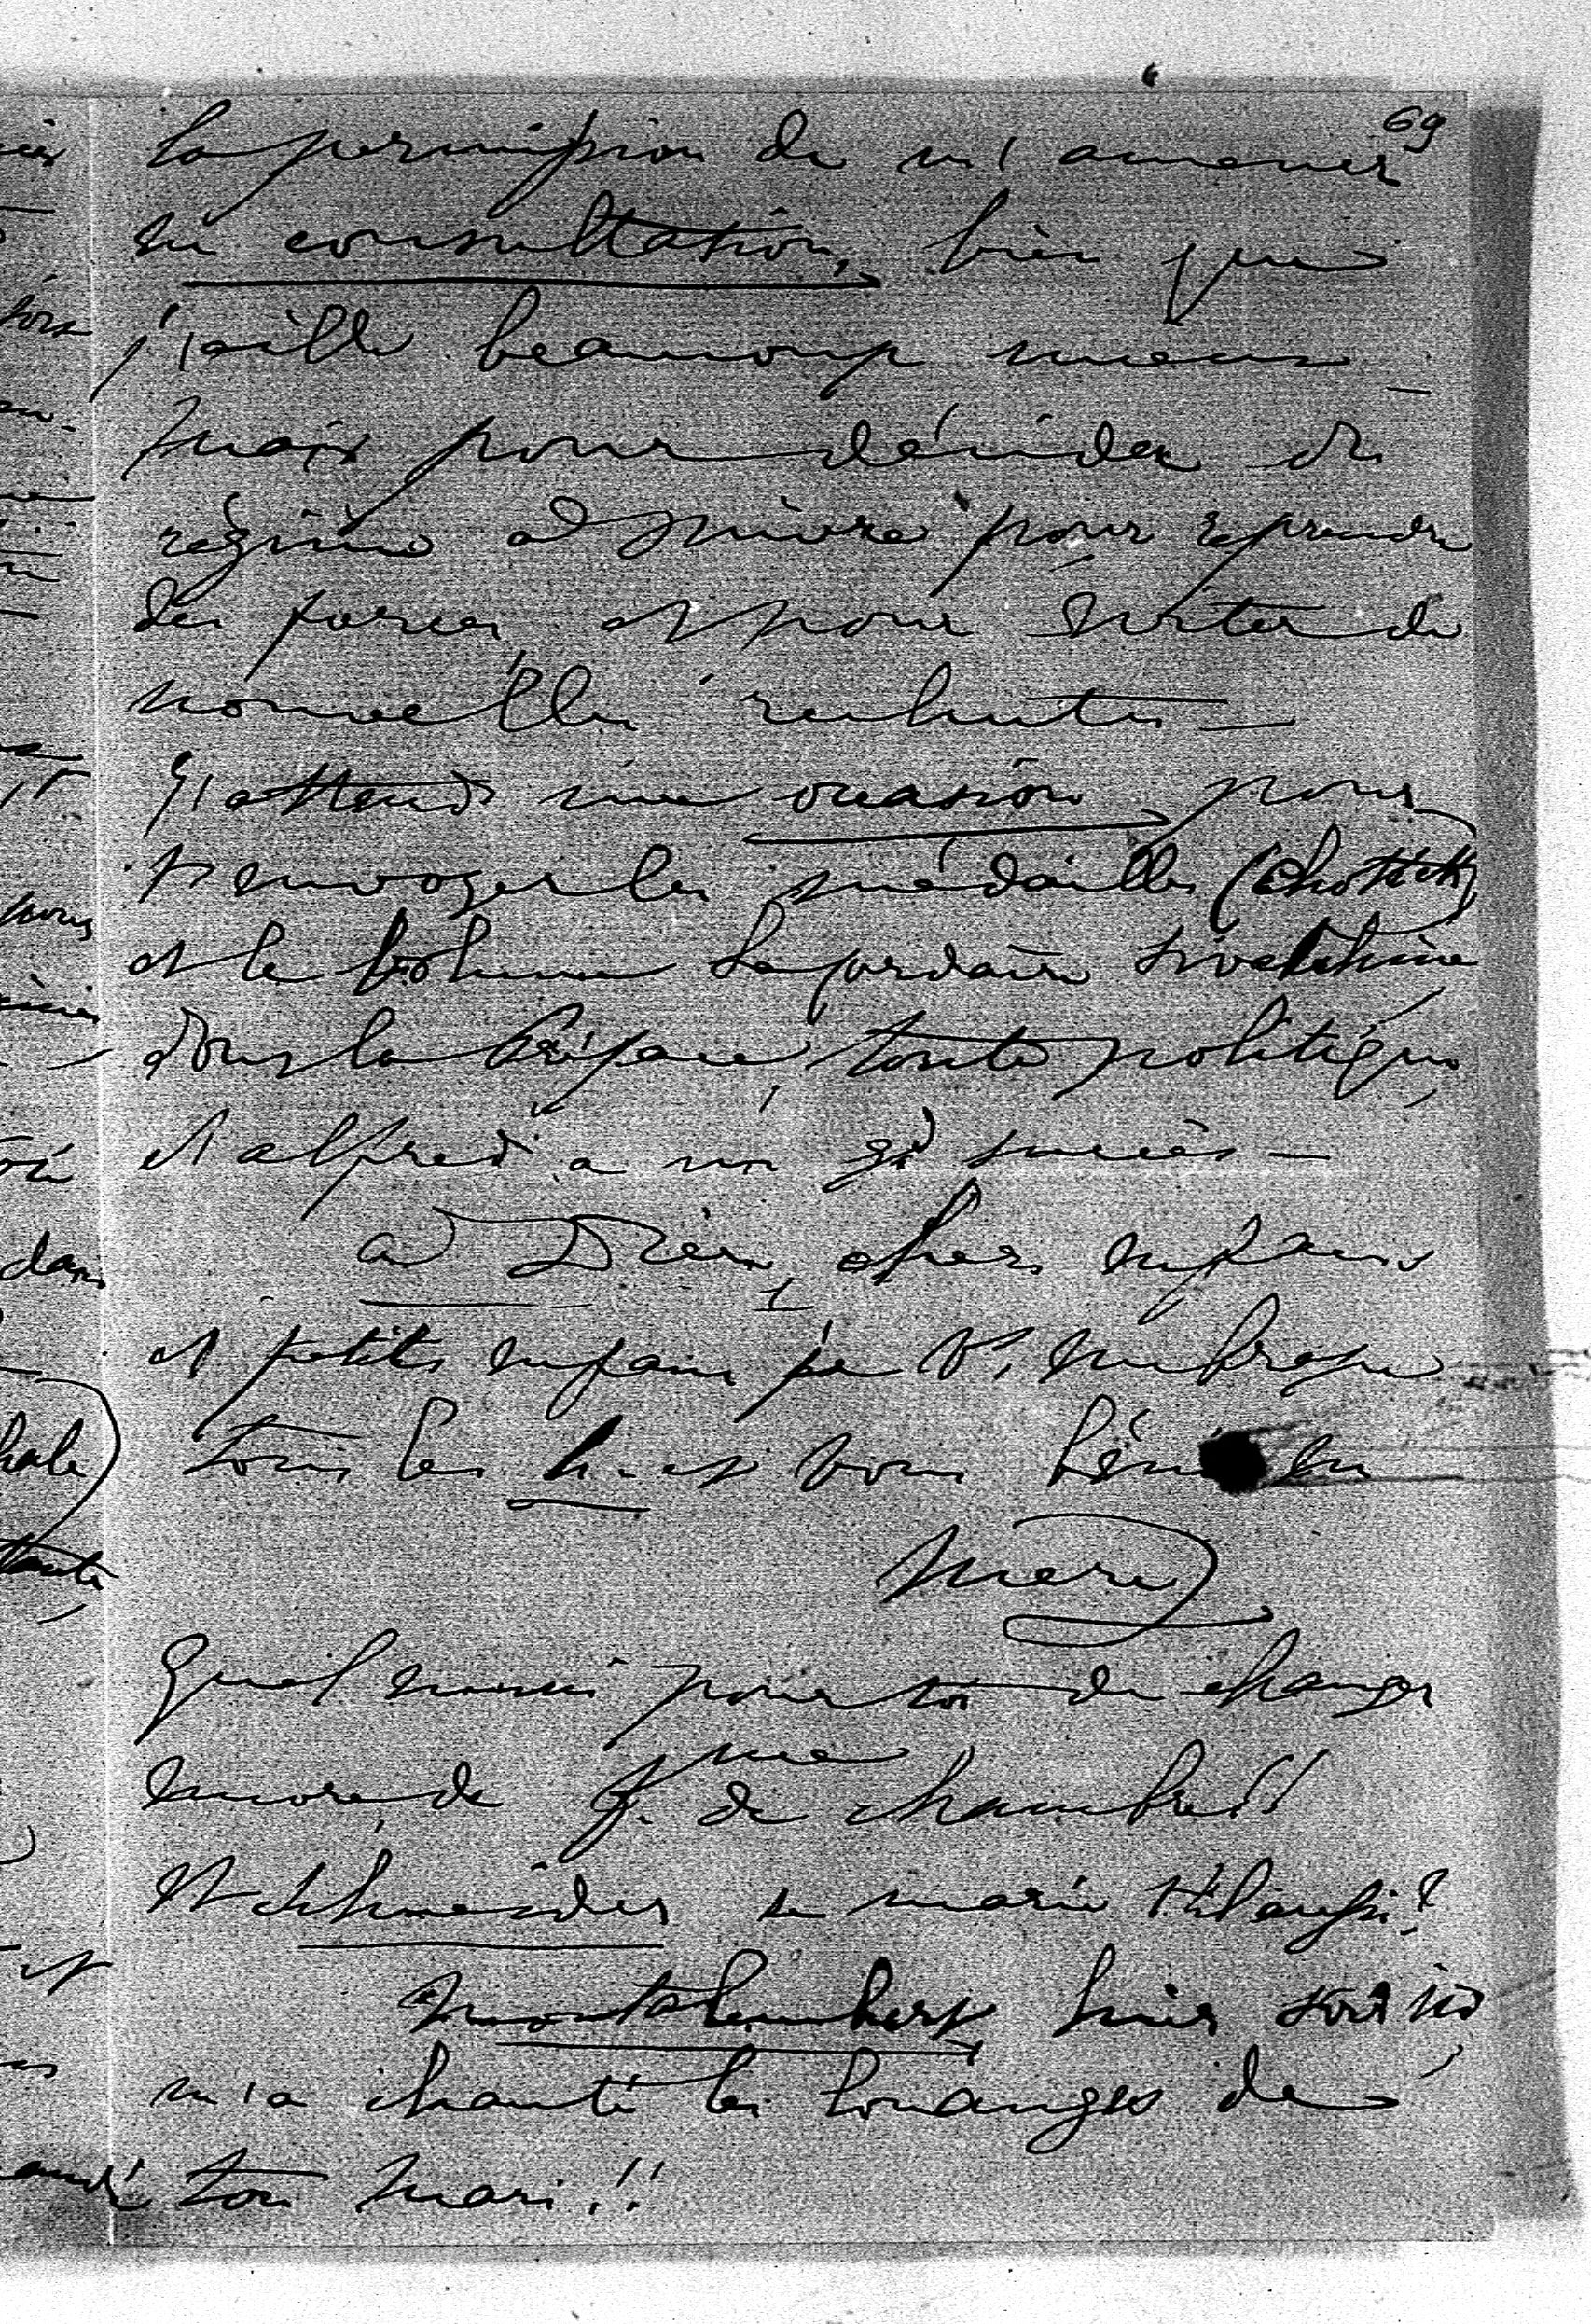 69
la permission de m'amener
en consultation, bien que
j'aille beaucoup mieux –
mais pour décider du
régime à suivre pour reprendre
des forces et pour éviter de
nouvelles rechutes –
J'attends une occasion pour
t'envoyer les médailles (Chotek)
et le volume Lacordaire Swetchine
dont la Préface, toute politique,
d'Alfred a un gd succès –
à Dieu, chers enfans
et petits enfans, je vs embrasse
tous les h. et vous bénis
mere
Quel ennui pour toi de changer
encore de f. de chambre!!
et Schneider se marie t'il aussi?
Montalembert hier soir
m'a chanté les louanges de
ton mari!!